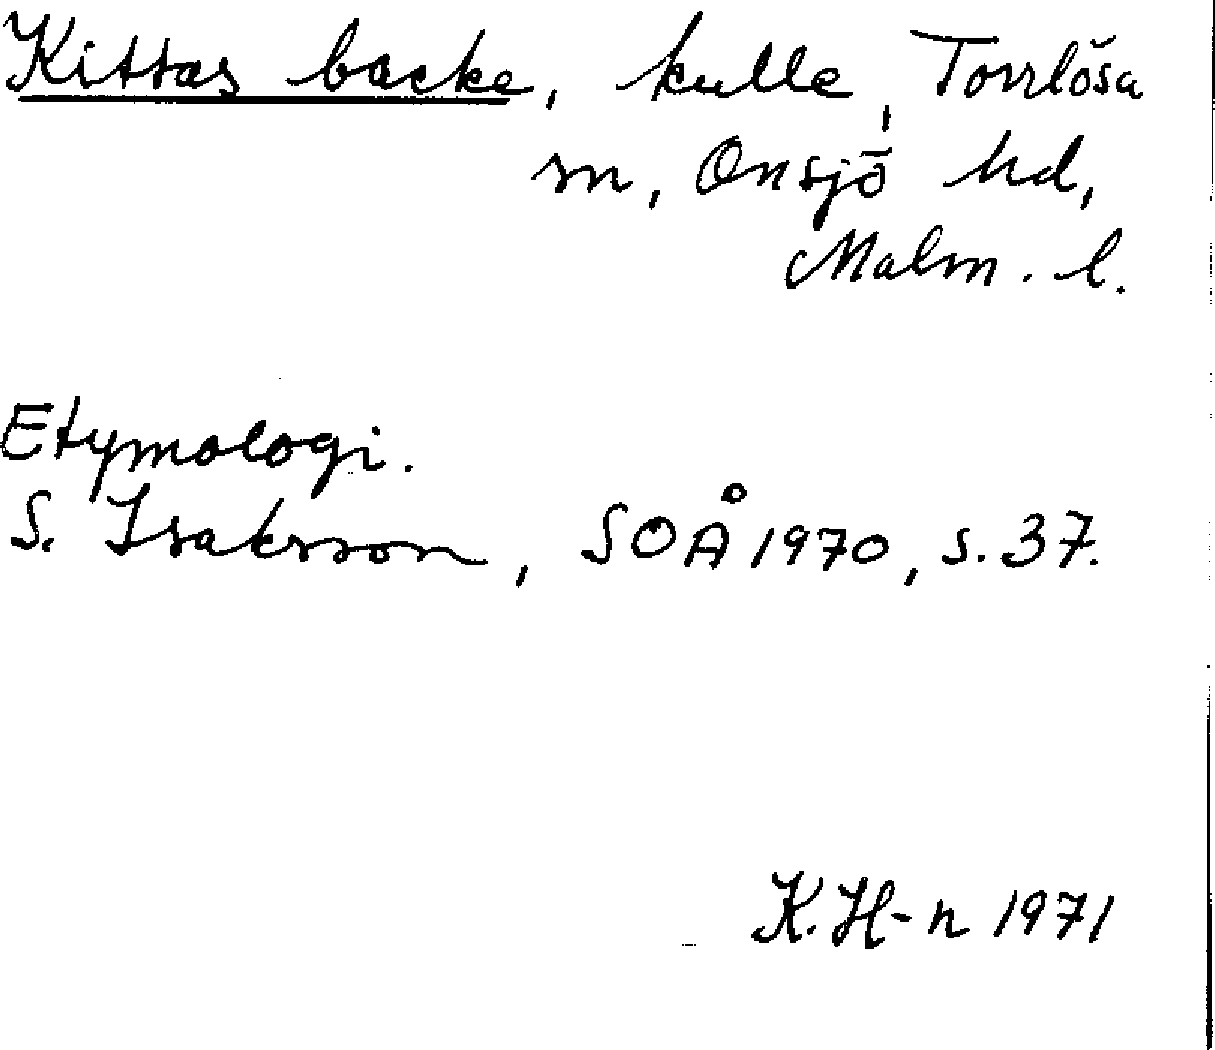 Kittas backe, kulle, Torrlösa
sn, Onsjö hd,
Malm. l.
Etymologi.
S. Isaksson, SOÅ 1970, s. 37.
K. H-n 1971